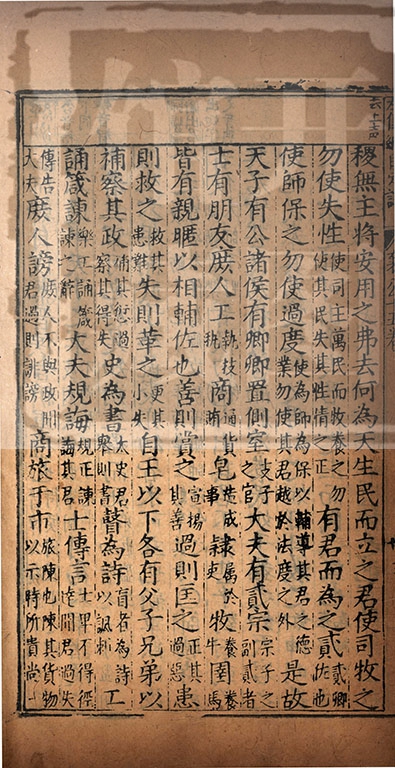 稷無主將安用之弗去何為天生民而立之君使司牧之
勿使失性使司主萬民而牧養之勿使其民失其性情之正有君而為之貳貳卿佐也
使師保之勿使過度使為師為保以輔導其君之德業勿使其君越於法度之外是故
天子有公諸侯有卿卿置側室支子之官大夫有貳宗宗子之副貳者
士有朋友庶人工執技商通貨賄皂造成事隸屬於吏牧養牛圉養馬
皆有親暱以相輔佐也善則賞之宣揚其善過則匡之正其過惡患
則救之救其患難失則革之更其小失自王以下各有父子兄弟以
補察其政補其愆過察其得失史為書太史君舉則書瞽為詩盲者為詩以諷刺工
誦箴諫樂工誦箴諫之辭大夫規誨規正諫誨其君士傳言士卑不得徑達聞君過失
傳告大夫庶人謗庶人不與政聞君過則誹謗商旅于市旅陳也陳其貨物以示時所貴尚